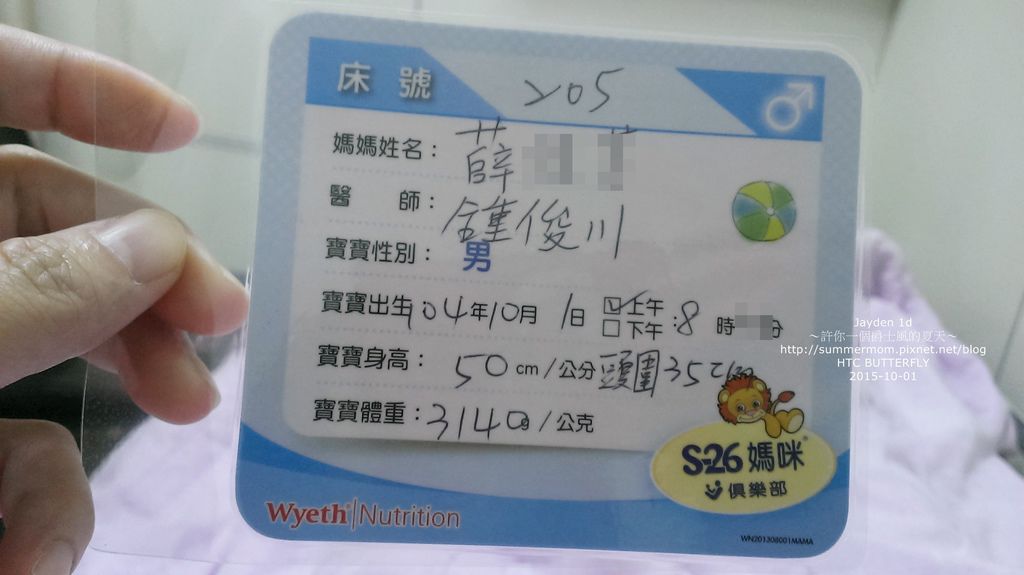 床號 205
媽媽姓名：薛
醫師：鍾俊川
寶寶性別：男
寶寶出生104年10月1日 ☑上午 □下午:8時分
寶寶身高：50cm/公分 頭圍35cm
寶寶體重：3140g/公克
S-26媽咪
俱樂部
Wyeth Nutrition
WN201308001MAMA
Jayden 1d
～許你一個爵士風的夏天～
http://summermom.pixnet.net/blog
HTC BUTTERFLY
2015-10-01